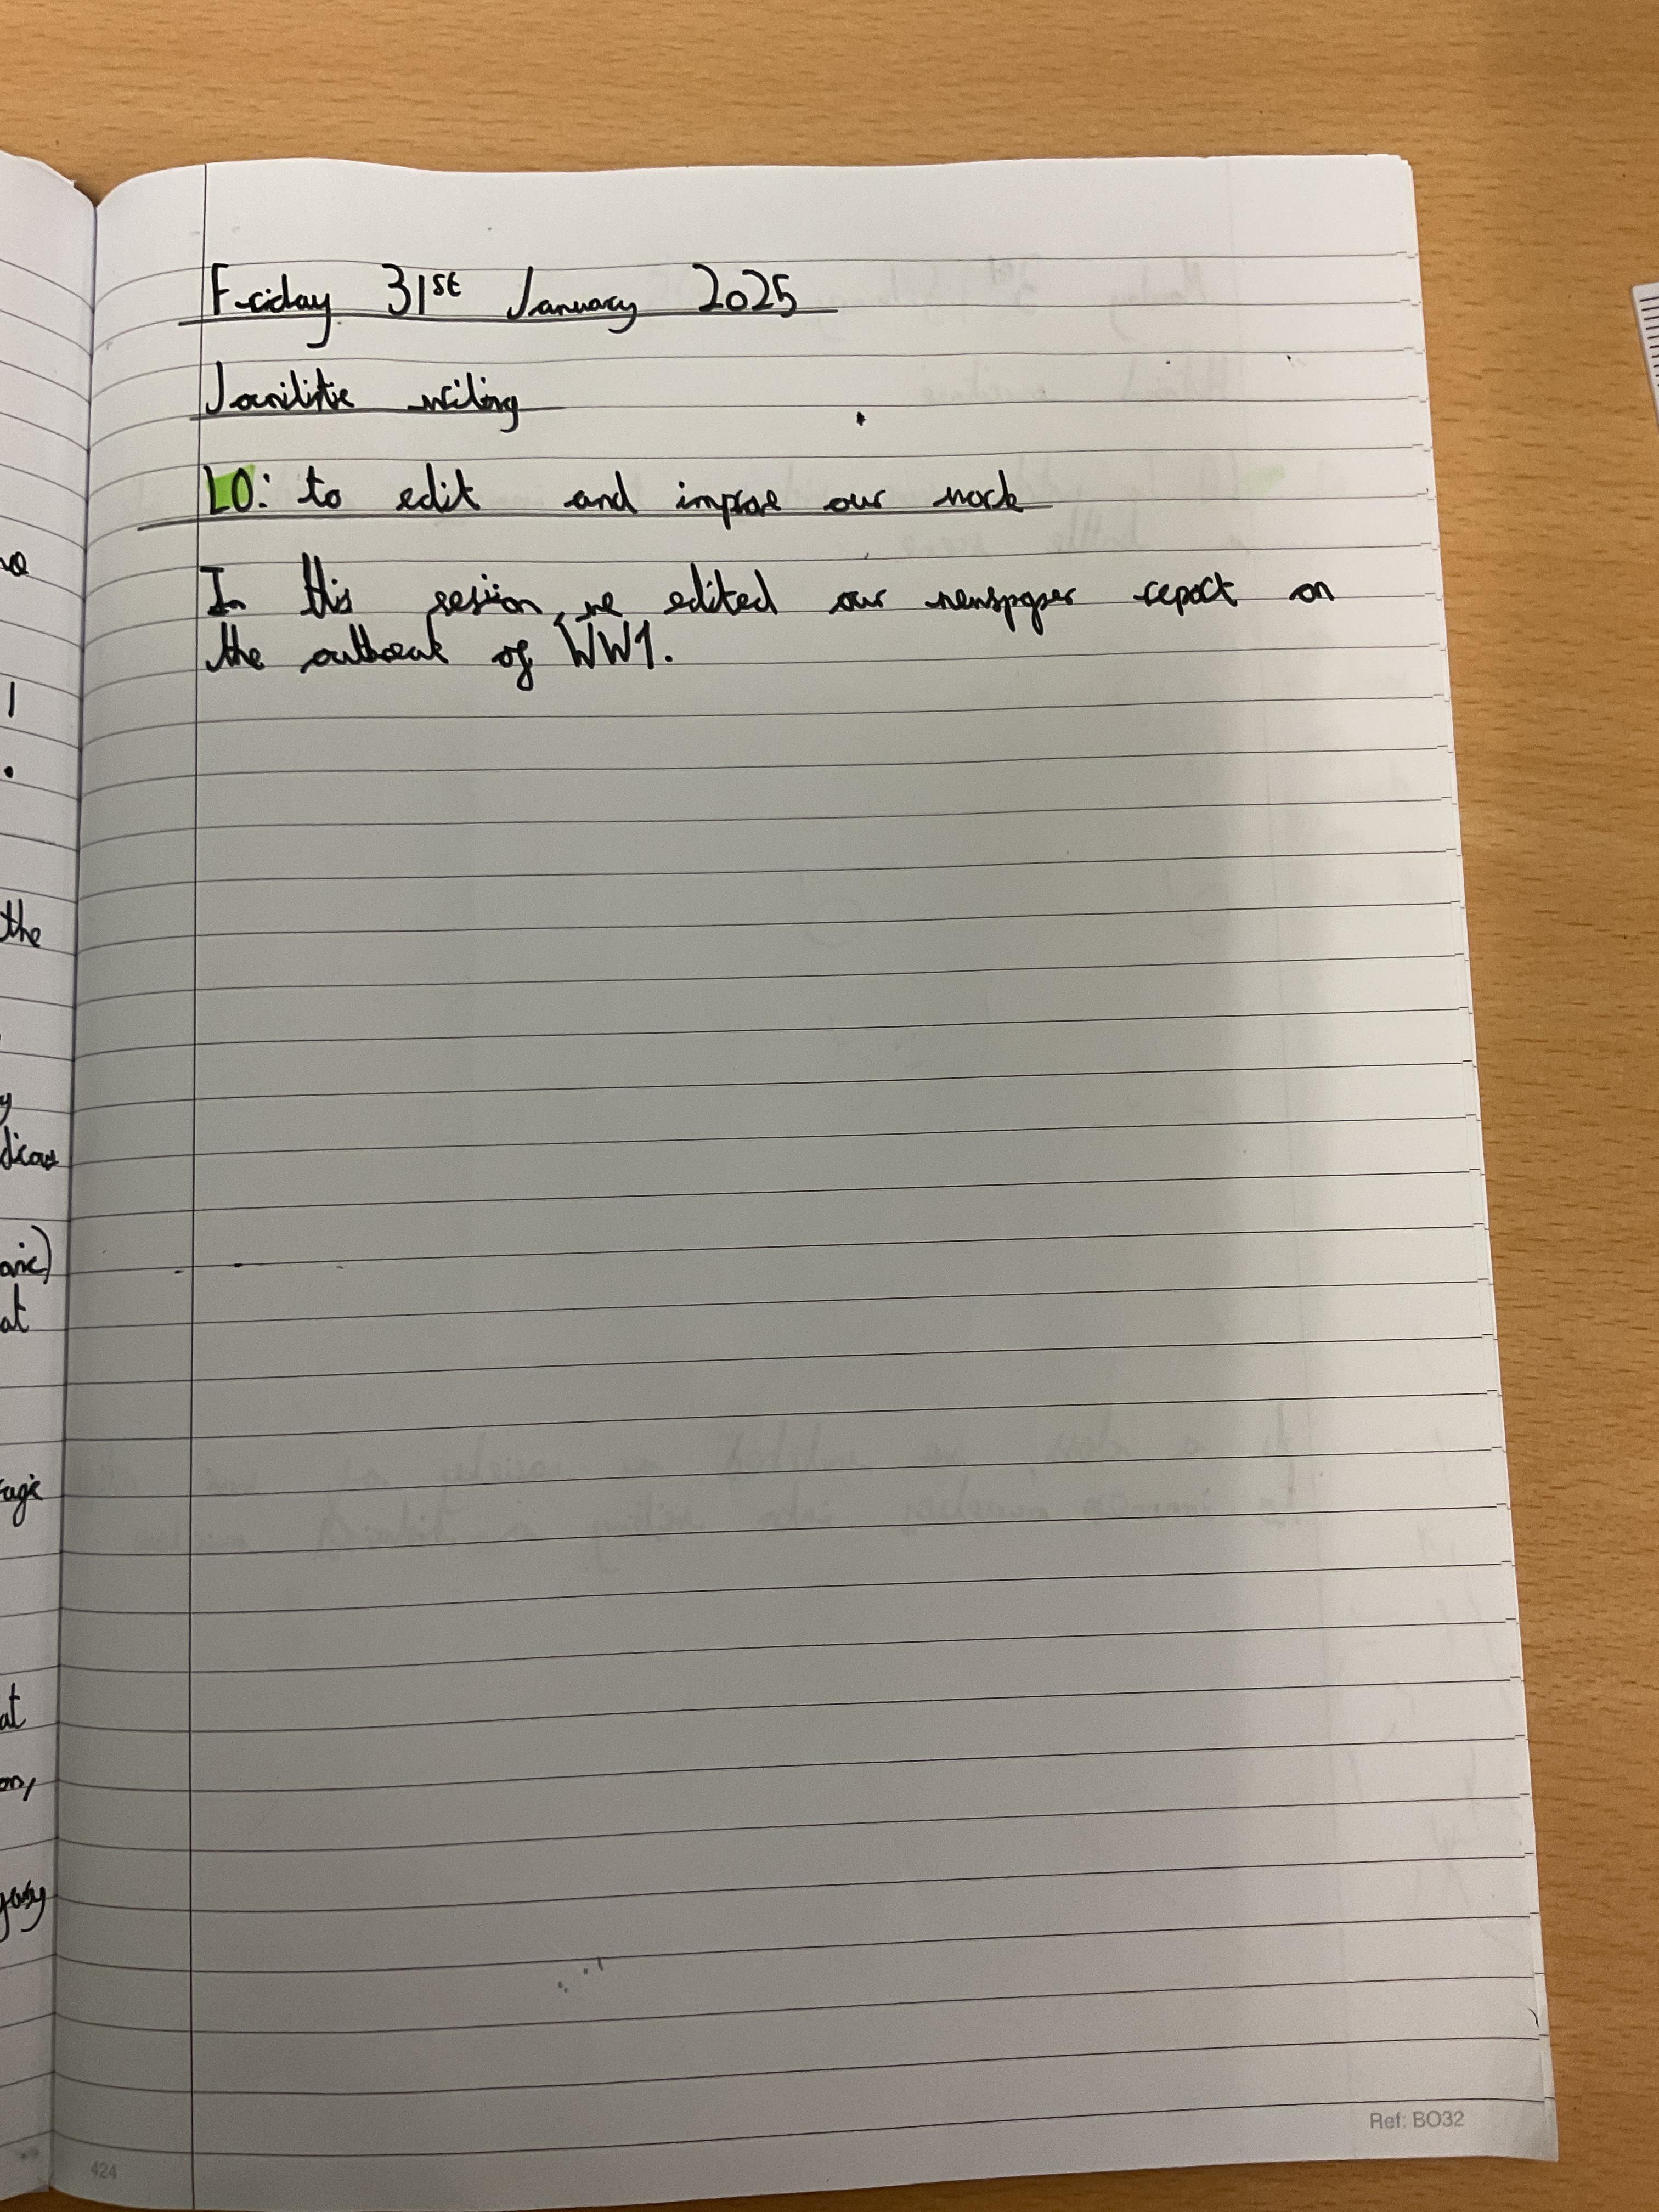 Friday 31st January 2025
writing
LO: to edit and improve our work
In this session, we edited our newspaper report on
the outbreak of WW1.
the
at
at
424
Ref: BO32